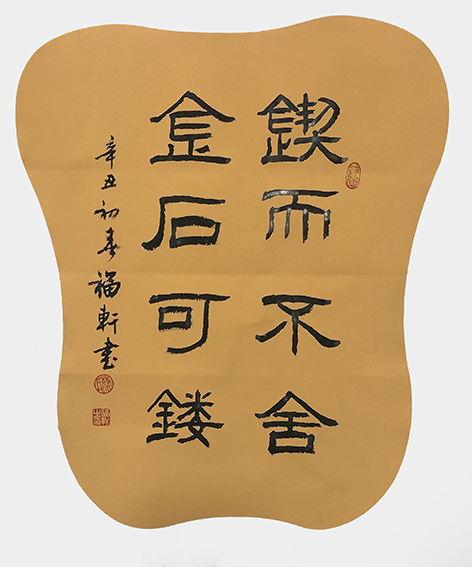 锲而不舍
金石可镂
辛丑初春福軒书